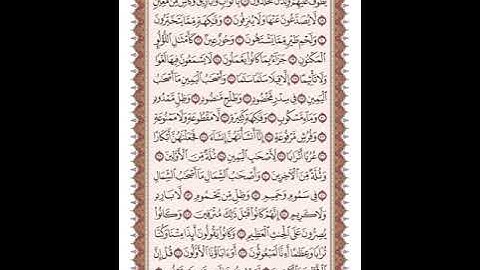 يَطُوفُ عَلَيْهِمْ وِلْدَٰنٌ مُّخَلَّدُونَ ۝ بِأَكْوَابٍ وَأَبَارِيقَ وَكَأْسٍ مِّن مَّعِينٍ
۝ لَّا يُصَدَّعُونَ عَنْهَا وَلَا يُنزِفُونَ ۝ وَفَٰكِهَةٍ مِّمَّا يَتَخَيَّرُونَ
۝ وَلَحْمِ طَيْرٍ مِّمَّا يَشْتَهُونَ ۝ وَحُورٌ عِينٌ ۝ كَأَمْثَٰلِ ٱللُّؤْلُؤِ
ٱلْمَكْنُونِ ۝ جَزَآءًۢ بِمَا كَانُوا۟ يَعْمَلُونَ ۝ لَا يَسْمَعُونَ فِيهَا لَغْوًا
وَلَا تَأْثِيمًا ۝ إِلَّا قِيلًا سَلَٰمًا سَلَٰمًا ۝ وَأَصْحَٰبُ ٱلْيَمِينِ مَآ أَصْحَٰبُ
ٱلْيَمِينِ ۝ فِى سِدْرٍ مَّخْضُودٍ ۝ وَطَلْحٍ مَّنضُودٍ ۝ وَظِلٍّ مَّمْدُودٍ
۝ وَمَآءٍ مَّسْكُوبٍ ۝ وَفَٰكِهَةٍ كَثِيرَةٍ ۝ لَّا مَقْطُوعَةٍ وَلَا مَمْنُوعَةٍ
۝ وَفُرُشٍ مَّرْفُوعَةٍ ۝ إِنَّآ أَنشَأْنَٰهُنَّ إِنشَآءً ۝ فَجَعَلْنَٰهُنَّ أَبْكَارًا
۝ عُرُبًا أَتْرَابًا ۝ لِّأَصْحَٰبِ ٱلْيَمِينِ ۝ ثُلَّةٌ مِّنَ ٱلْأَوَّلِينَ
۝ وَثُلَّةٌ مِّنَ ٱلْءَاخِرِينَ ۝ وَأَصْحَٰبُ ٱلشِّمَالِ مَآ أَصْحَٰبُ ٱلشِّمَالِ
۝ فِى سَمُومٍ وَحَمِيمٍ ۝ وَظِلٍّ مِّن يَحْمُومٍ ۝ لَّا بَارِدٍ
وَلَا كَرِيمٍ ۝ إِنَّهُمْ كَانُوا۟ قَبْلَ ذَٰلِكَ مُتْرَفِينَ ۝ وَكَانُوا۟
يُصِرُّونَ عَلَى ٱلْحِنثِ ٱلْعَظِيمِ ۝ وَكَانُوا۟ يَقُولُونَ أَئِذَا مِتْنَا وَكُنَّا
تُرَابًا وَعِظَٰمًا أَءِنَّا لَمَبْعُوثُونَ ۝ أَوَءَابَآؤُنَا ٱلْأَوَّلُونَ ۝ قُلْ إِنَّ